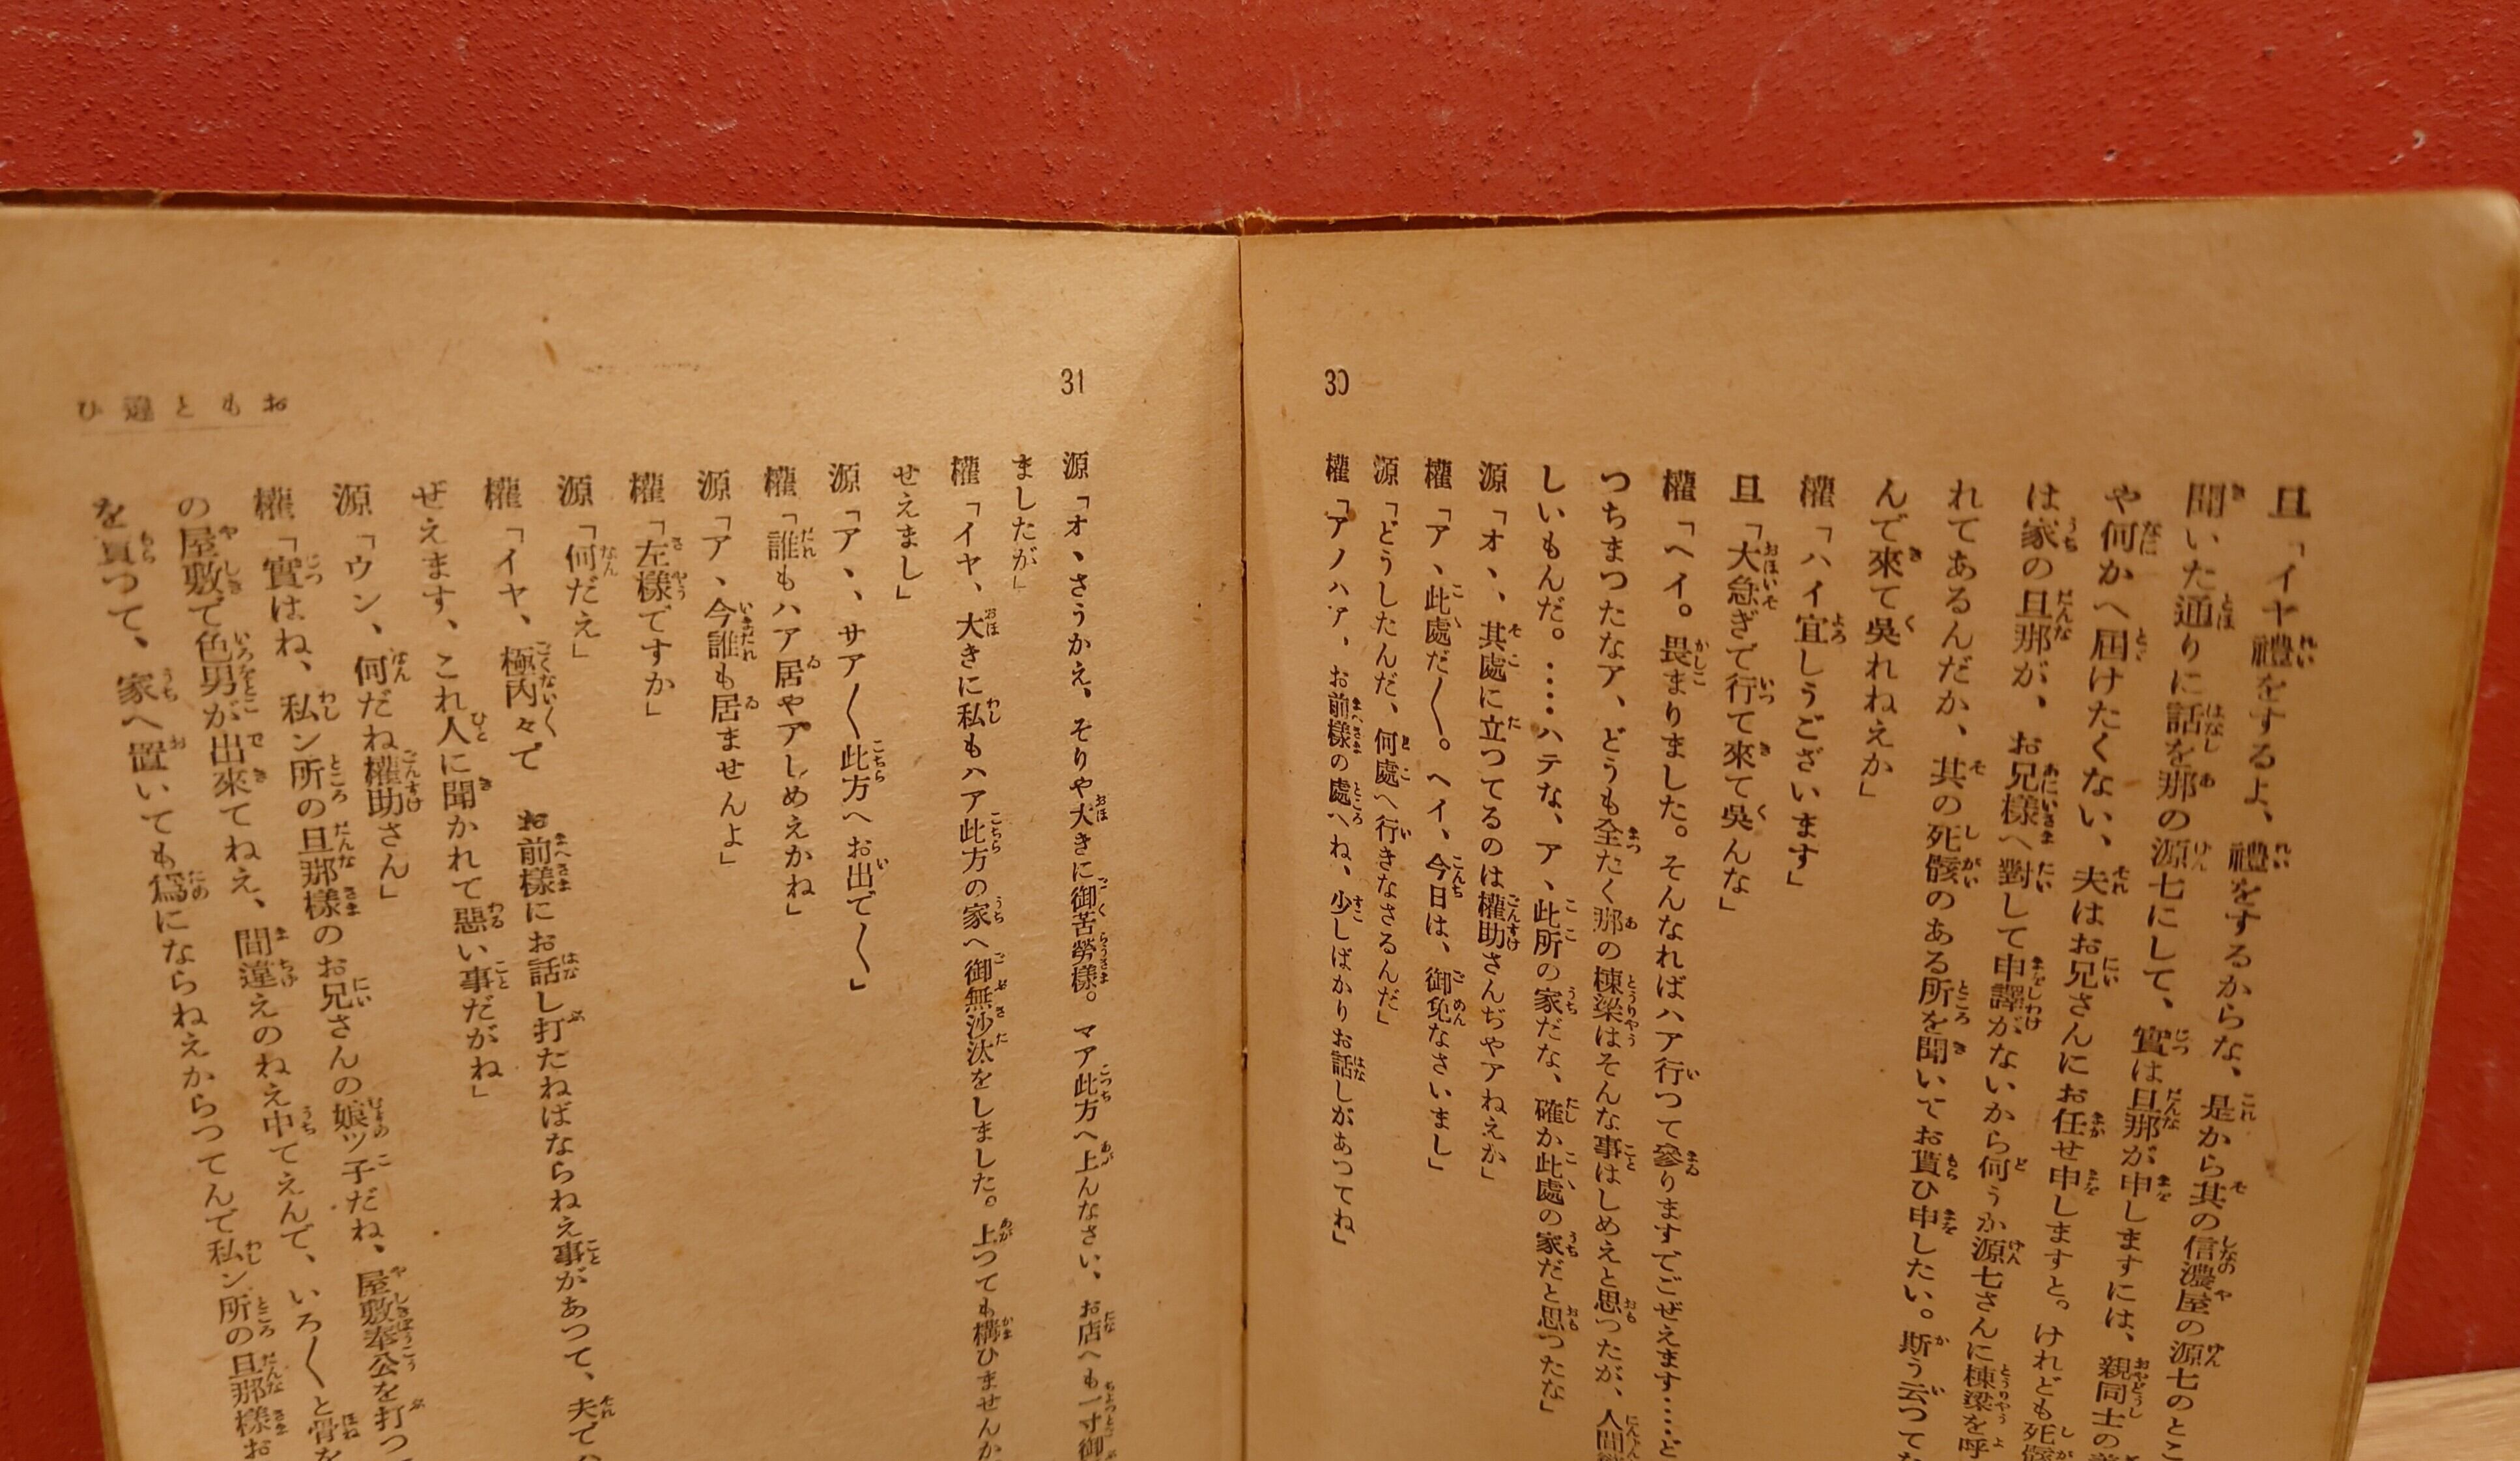 30
旦「イヤ禮をするよ、禮をするからな、是から其の信濃屋の源七のとこ
聞いた通りに話を那の源七にして、實は旦那が申しますには、親同士の
や何かへ屆けたくない、夫はお兄さんにお任せ申しますと。けれども死骸
は家の旦那が、お兄樣へ對して申譯がないから何うか源七さんに棟梁を呼
れてあるんだか、其の死骸のある所を聞いてお貰ひ申したい。斯う云つて
んで來て吳れねえか」
權「ハイ宜しうございます」
旦「大急ぎで行つて來て吳んな」
權「ヘイ。畏まりました。そんなればハア行つて參りますでごぜえます‥‥ど
つちまつたなア、どうも全たく那の棟梁はそんな事はしめえと思つたが、人間
しいもんだ。‥‥ハテな、ア、此所の家だな、確か此處の家だと思つたな」
源「オ、、其處に立つてるのは權助さんぢやアねえか」
權「ア、此處だ〱。ヘイ、今日は、御免なさいまし」
源「どうしたんだ、何處へ行きなさるんだ」
權「アノハア、お前樣の處へね、少しばかりお話しがあつてね」
31
おもと違ひ
源「オ、さうかえ、そりや大きに御苦勞樣。マア此方へ上んなさい、お店へも一寸御
ましたが」
權「イヤ、大きに私もハア此方の家へ御無沙汰をしました。上つても構ひませんか
せえまし」
源「ア、、サア〱此方へお出で〱」
權「誰もハア居やアしめえかね」
源「ア、今誰も居ませんよ」
權「左樣ですか」
源「何だえ」
權「イヤ、極内々で お前樣にお話し打たねばならねえ事があつて、夫での
ぜえます、これ人に聞かれて惡い事だがね」
源「ウン、何だね權助さん」
權「實はね、私ン所の旦那樣のお兄さんの娘ツ子だね、屋敷奉公を打つ
の屋敷で色男が出來てねえ、間違えのねえ中てえんで、いろ〱と骨を
を貰つて、家へ置いても爲にならねえからつてんで私ン所の旦那樣お